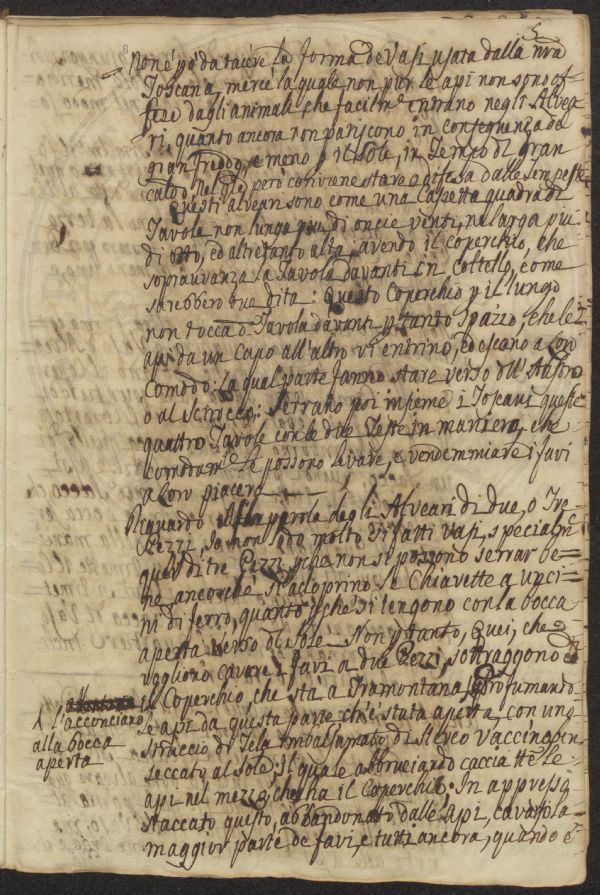 5
8 Non è pò da tacere la forma de Vasi usata dalla nrã
Toscana, mercè la quale non pur le api non sono of=
fese dagli animali che facilm.e entrano negli Alvea
ri, quanto ancora non patiscono in conseguenza da
gran Freddo, e meno p il sole, in Tempo di gran
caldo, nel qle però conviene stare a difesa dalle tempeste
Questi alveari sono come una Cassetta quadra di
Tavole non lunga più di oncie venti, ne larga più
di otto, ed altretanto alta; avendo il coperchio, che
sopravvanza la Tavola davanti in coltello, come
sarebbero due dita: Questo Coperchio p il lungo
non tocca d.a Tavola davanti p tanto Spazio, che le
api da un capo all'altro vi entrino, ed escano a lor
comodo: La qual parte fanno stare verso dll' Austro
o al Scirocco: Serrano poi insieme i Toscani queste
quattro Tavole con le due Teste in maniera, che
comodam.e la possono levare, e vendemmiare i favi
a loro piacere
Riguardo alla parola degli Alveari di due, o Tre
Pezzi, Io non lodo molto sì fatti vasi, specialm.e
quei di tre Pezzi, pchè non si possono serrar be=
ne ancorchè si adoprino le Chiavette a unci=
ni di ferro, quanto pchè si tengono con la bocca
aperta verso dl sole. Non ptanto, Quei, che
vogliono cavare i favi a due Pezzi, sottraggono
il Coperchio, che stà a Tramontana, profumando
le api da questa parte ch'è stata aperta, con uno
straccio di Tela imbalsamato di sterco Vaccino in
seccato al sole: Il quale abbruciando caccia tte le
api nel mezzo, che ha il Coperchio: In appresso
staccato questo, abbandonato dalle api, cavan la
maggior parte de favi, e tutti ancora, quando è
l'acconciano
alla bocca
aperta